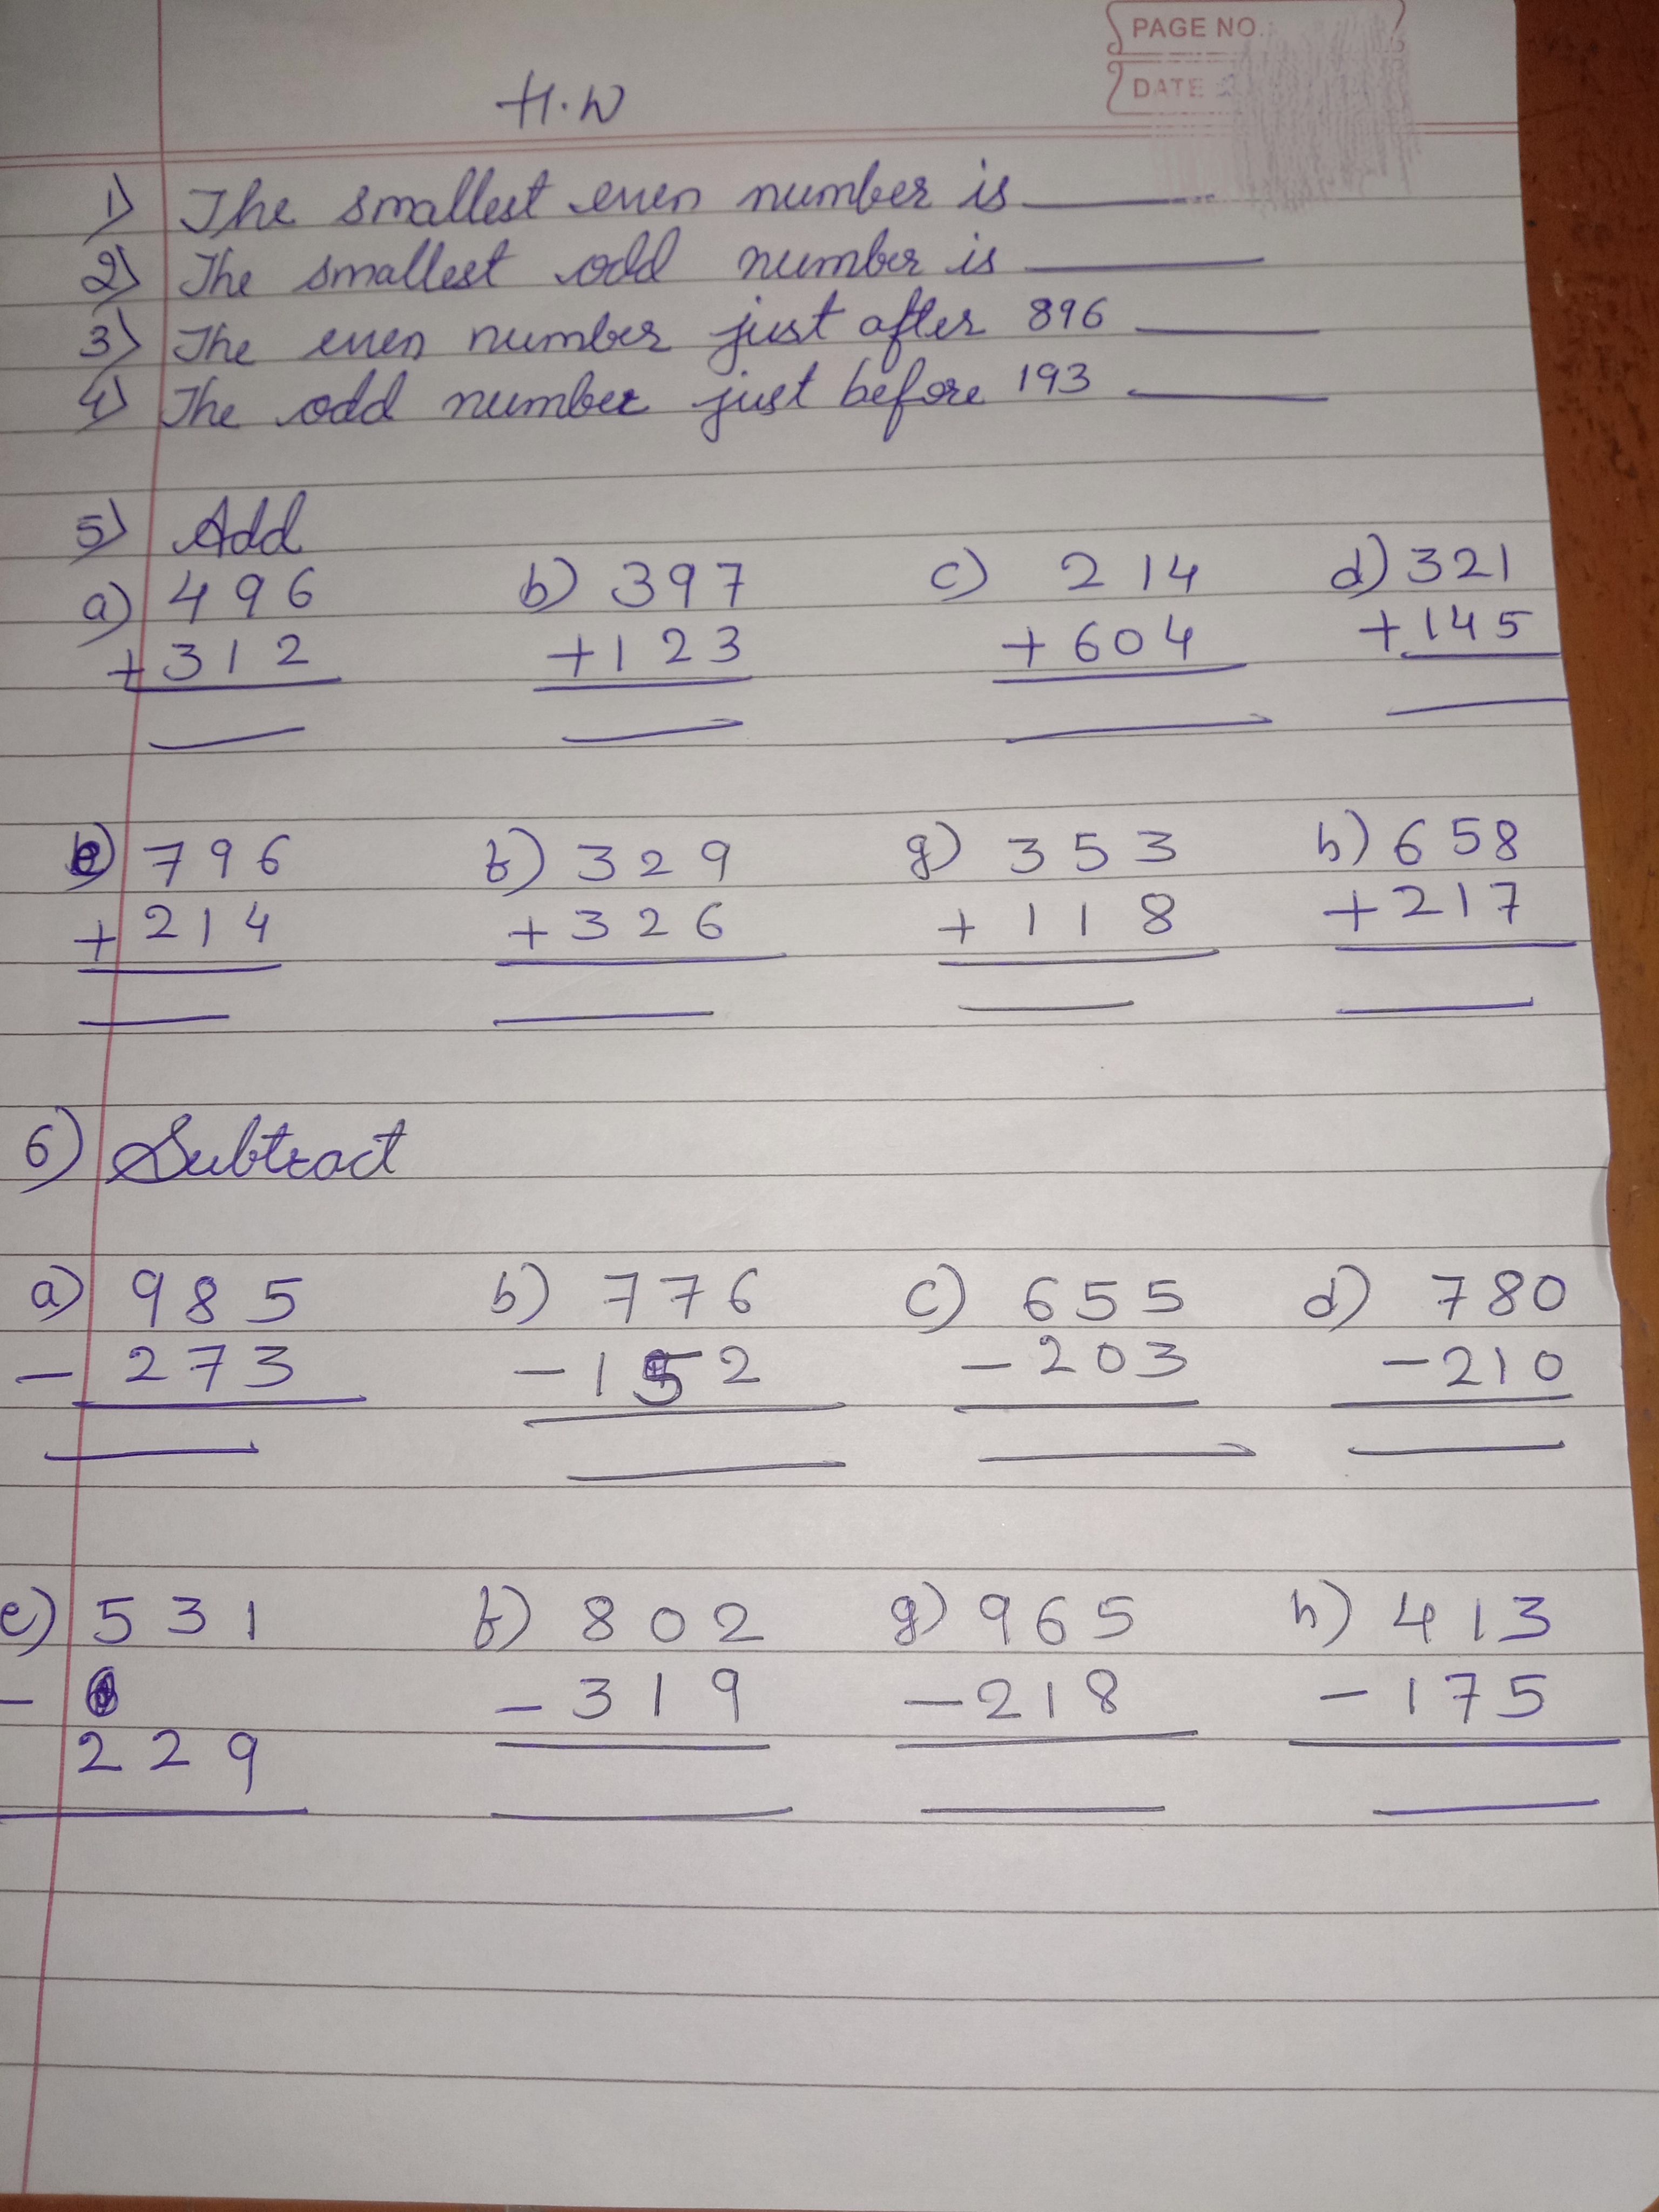 PAGE NO.
DATE
H.W
1) The smallest even number is
2) The smallest odd number is
3) The even number just after 896
4) The odd number just before 193
5) Add
a) 496 b) 397 c) 214 d) 321
+312 +123 +604 +145
e) 796 f) 329 g) 353 h) 658
+214 +326 +118 +217
6) Subtract
a) 985 b) 776 c) 655 d) 780
-273 -152 -203 -210
e) 531 f) 802 g) 965 h) 413
- -319 -218 -175
229